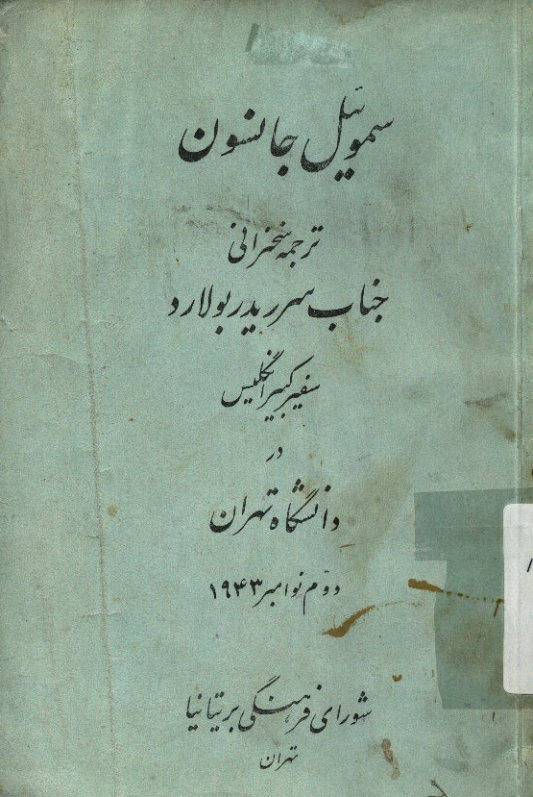 سموئیل جانسون
ترجمه سخنرانی
جناب سر ریدر بولارد
سفیر کبیر انگلیس
در
دانشگاه تهران
دوم نوامبر ۱۹۴۳
شورای فرهنگی بریتانیا
تهران